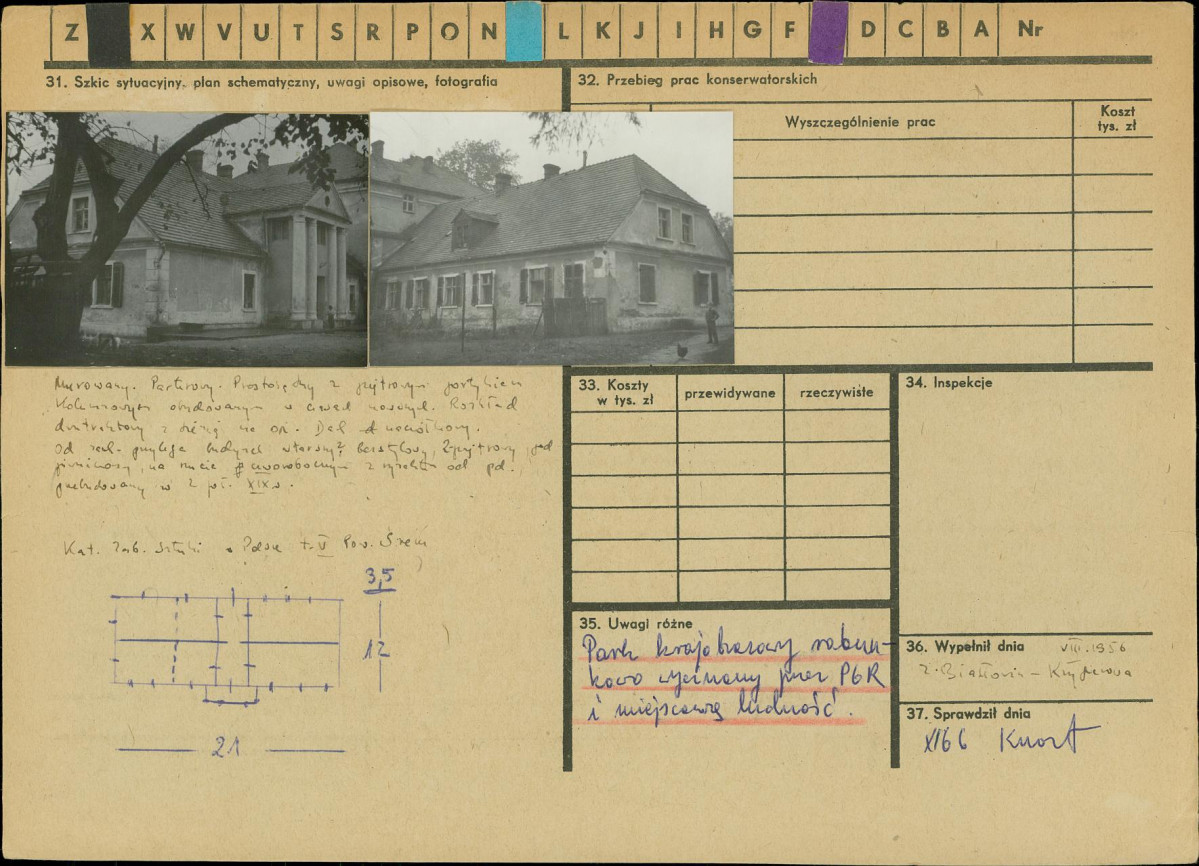 Z X W V U T S R P O N L K J I H G F D C B A Nr
31. Szkic sytuacyjny, plan schematyczny, uwagi opisowe, fotografia
32. Przebieg prac konserwatorskich
Wyszczególnienie prac
Koszt
tys. zł
Murowany. Parterowy. Prostokątny z piętrowym portykiem
kolumnowym obudowanym w czasach nowszych. Rozkład
dwutraktowy z sienią na osi. Dach naczółkowy.
Od
na rzucie czworobocznym z od pd.
przebudowany w 2 poł. XIX w.
Kat. Zab. Sztuki w Polsce t. V Pow. Śrem
3,5
12
21
33. Koszty
w tys. zł
przewidywane
rzeczywiste
34. Inspekcje
35. Uwagi różne
Park krajobrazowy rabun-
kowo wycinany przez PGR
i miejscową ludność.
36. Wypełnił dnia VIII.1956
37. Sprawdził dnia
XI66